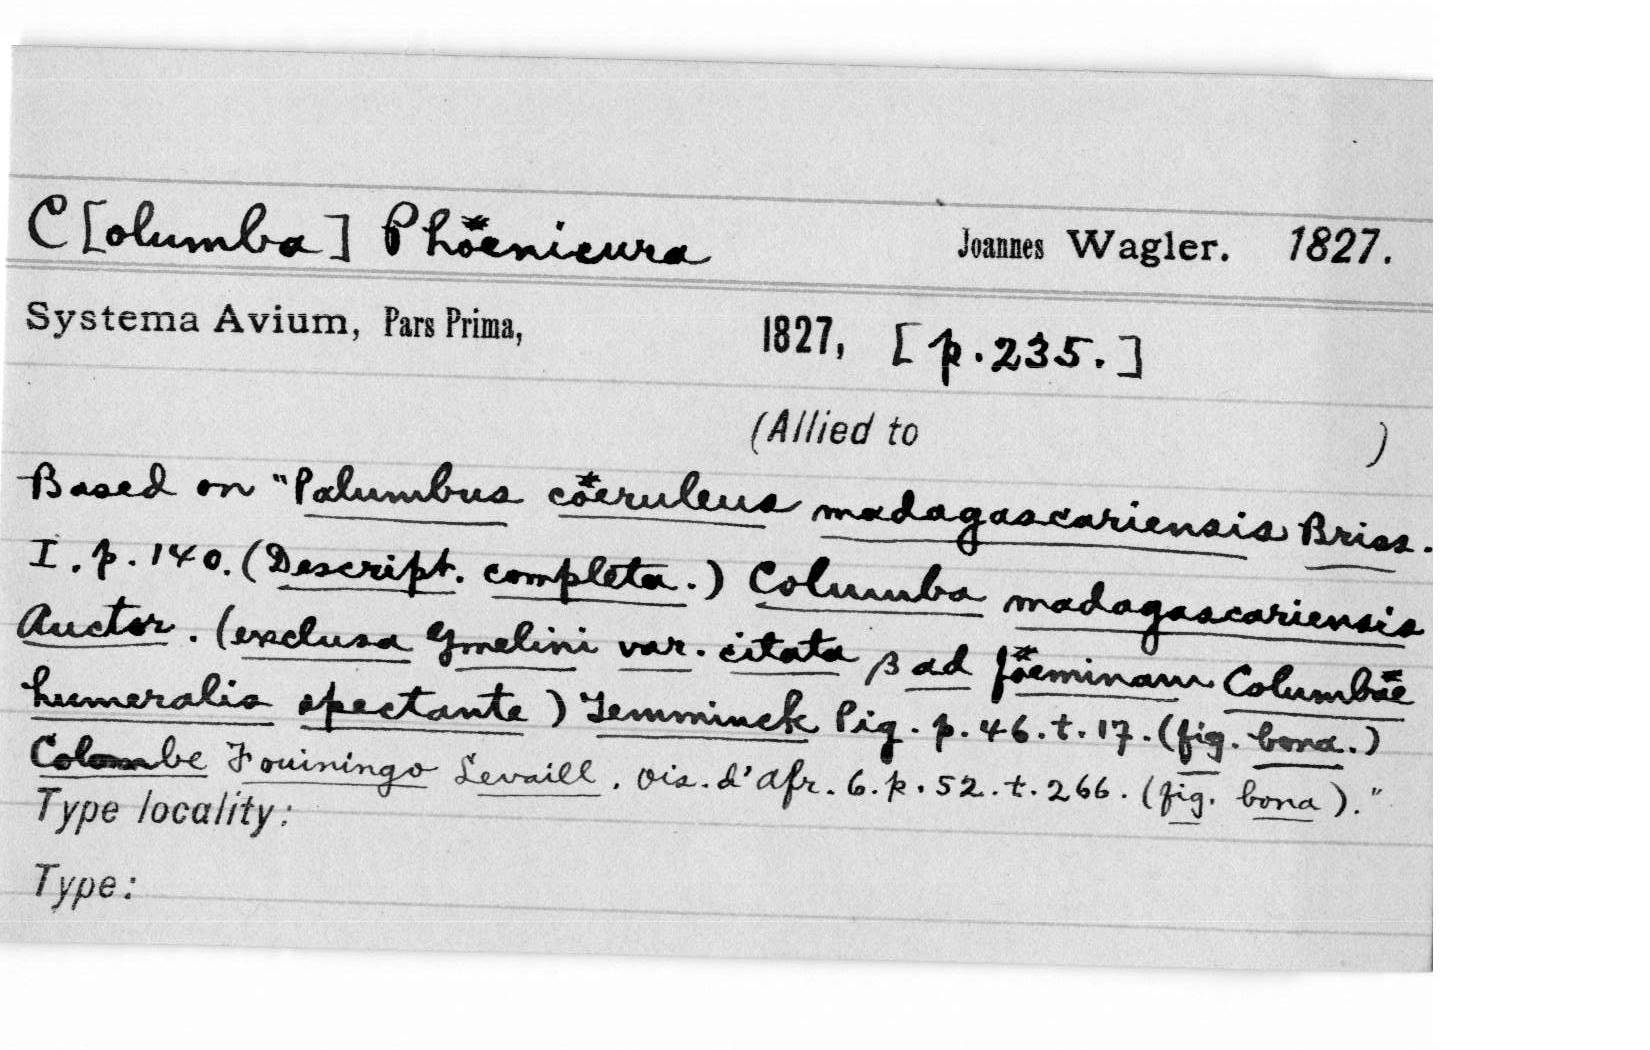 C[olumba] Phöenicura Joannes Wagler. 1827.
Systema Avium, Pars Prima, 1827, [p. 235.]
(Allied to )
Based on "Palumbus cöeruleus madagascariensis Briss.
I. p. 140. (Descript. completa.) Columba madagascariensis
Auctor. (exclusa Gmelini var. citata β ad föeminam Columbäe
humeralis spectante) Temminck Pig. p. 46. t. 17. (fig. bona.)
Colombe Founingo Levaill. Ois. d'Afr. 6. p. 52. t. 266. (fig. bona)."
Type locality:
Type: